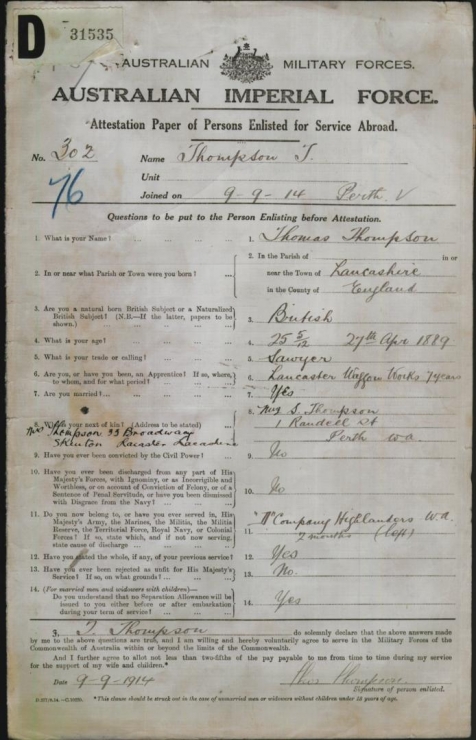 D 31535
AUSTRALIAN MILITARY FORCES.
AUSTRALIAN IMPERIAL FORCE.
Attestation Paper of Persons Enlisted for Service Abroad.
No. 302 Name Thompson T.
76
Unit
Joined on 9-9-14 Perth
Questions to be put to the Person Enlisting before Attestation.
1. What is your Name? ... ... ... 1. Thomas Thompson
2. In or near what Parish or Town were you born? ... 2. In the Parish of in or
near the Town of Lancashire
in the County of England
3. Are you a natural born British Subject or a Naturalized
British Subject? (N.B.—If the latter, papers to be
shown.) 3. British
4. What is your age? 4. 25 5/12 27th Apr 1889
5. What is your trade or calling? 5. Sawyer
6. Are you, or have you been, an Apprentice? If so, where,
to whom, and for what period? 6. Lancaster Waggon Works 7 years
7. Are you married? 7. Yes
8. Who is your next of kin? (Address to be stated) 8. Mrs S. Thompson
Mrs Thompson 33 Broadway 1 Randell St
Skerton Perth W.A.
9. Have you ever been convicted by the Civil Power? 9. No
10. Have you ever been discharged from any part of His
Majesty's Forces, with Ignominy, or as Incorrigible and
Worthless, or on account of Conviction of Felony, or of a
Sentence of Penal Servitude, or have you been dismissed
with Disgrace from the Navy? 10. No
11. Do you now belong to, or have you ever served in, His
Majesty's Army, the Marines, the Militia, the Militia
Reserve, the Territorial Force, Royal Navy, or Colonial
Forces? If so, state which, and if not now serving,
state cause of discharge 11. Company Highlanders W.A.
2 months (left)
12. Have you stated the whole, if any, of your previous service? 12. Yes
13. Have you ever been rejected as unfit for His Majesty's
Service? If so, on what grounds? 13. No.
14. (For married men and widowers with children)—
Do you understand that no Separation Allowance will be
issued to you either before or after embarkation
during your term of service? 14. Yes
T. Thompson do solemnly declare that the above answers made
by me to the above questions are true, and I am willing and hereby voluntarily agree to serve in the Military Forces of the
Commonwealth of Australia within or beyond the limits of the Commonwealth.
And I further agree to allot not less than two-fifths of the pay payable to me from time to time during my service
for the support of my wife and children.*
Date 9-9-1914 Thos Thompson
Signature of person enlisted.
*This clause should be struck out in the case of unmarried men or widowers without children under 18 years of age.